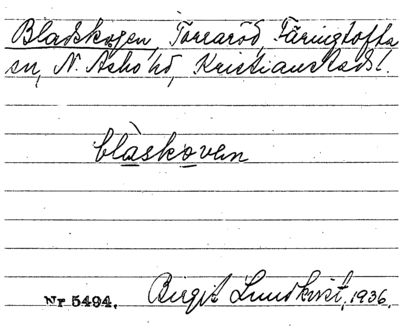 Bladskogen, Torraröd, Färingtofta
sn, N. Åsbo hd, Kristianstads l.
blàskoven
Nr 5494. Birgit Lundkvist, 1936.